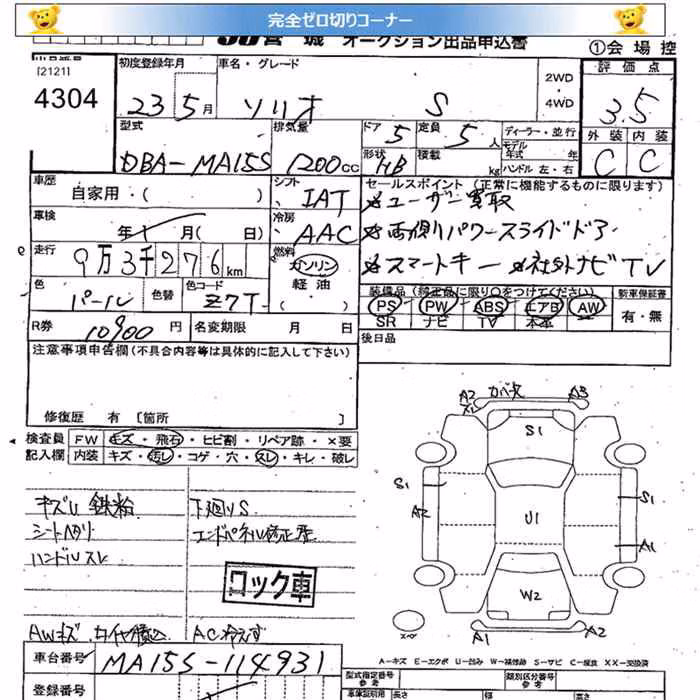 完全ゼロ切りコーナー
宮城 オークション出品申込書
①会場控
[2121]
4304
初度登録年月
23 5月
車名・グレード
ソリオ S
2WD
4WD
評価点
3.5
外装 内装
C C
型式
DBA-MA15S
排気量
1200cc
ドア 5
定員 5人
形状 HB
積載 kg
ディーラー・並行
モデル年式 年
ハンドル 左・右
車歴
自家用・( )
シフト
IAT
セールスポイント(正常に機能するものに限ります)
ユーザー買取
両側パワースライドドア
スマートキー 社外ナビTV
車検
年 月( 日)
冷房
AAC
走行
9万3千276km
燃料
ガソリン
軽油
色
パール
色替
色コード
Z7T
装備品(純正品に限り〇をつけてください)
PS PW ABS エアB AW
SR ナビ TV 本革
新車保証書
有・無
R券
10900円
名変期限 月 日
後日品
注意事項申告欄(不具合内容等は具体的に記入して下さい)
修復歴 有 [箇所 ]
検査員記入欄
FW キズ・飛石・ヒビ割・リペア跡・×要
内装 キズ・汚レ・コゲ・穴・スレ・キレ・破レ
下廻りS
シートヘタリ
エンドパネル修正歴
ハンドルスレ
ロック車
AWキズ
A2 X1 カバー欠 A3
S1
S1
A2
U1
S1
A1
W2
スペア
A1 A2
A-キズ E-エクボ U-凹み W-補修跡 S-サビ C-腐食 XX-交換済
車台番号
MA15S-114931
登録番号
型式指定番号 参考
類別区分番号 参考
車検証明用 長さ 幅 高さ